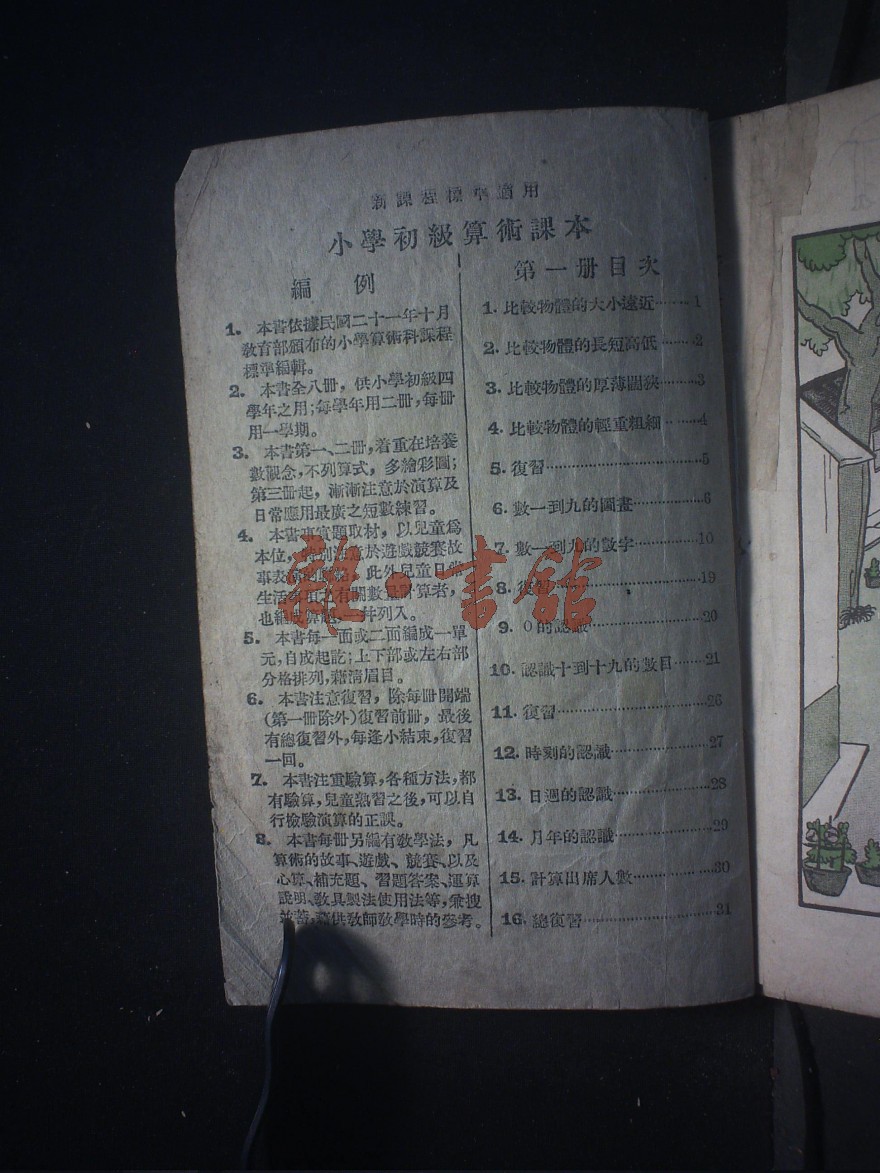 新課程標準適用
小學初級算術課本
編例
1. 本書依據民國二十一年十月
教育部頒布的小學算術科課程
標準編輯。
2. 本書全八冊，供小學初級四
學年之用；每學年用二冊，每冊
用一學期。
3. 本書第一、二冊，着重在培養
數觀念，不列算式，多繪彩圖；
第三冊起，漸漸注意於演算及
日常應用最廣之短數練習。
4. 本書事實題取材，以兒童爲
本位，特別注意於遊戲競賽故
事表 此外兒童日常
生活 有關數量計算者，
也編成算題，一幷列入。
5. 本書每一面或二面編成一單
元，自成起訖；上下部或左右部
分格排列，藉清眉目。
6. 本書注意復習，除每冊開端
(第一冊除外)復習前冊，最後
有總復習外，每逢小結束，復習
一回。
7. 本書注重驗算，各種方法，都
有驗算，兒童熟習之後，可以自
行檢驗演算的正誤。
8. 本書每冊另編有教學法，凡
算術的故事、遊戲、競賽、以及
心算、補充題、習題答案、運算
說明、教具製法使用法等，兼搜
並蓄，藉供教師教學時的參考。
第一册目次
1. 比較物體的大小遠近········1
2. 比較物體的長短高低········2
3. 比較物體的厚薄闊狹········3
4. 比較物體的輕重粗細········4
5. 復習········5
6. 數一到九的圖畫········6
7. 數一到九的數字········10
8. 復習········19
9. 0的認識········20
10. 認識十到十九的數目········21
11. 復習········26
12. 時刻的認識········27
13. 日週的認識········28
14. 月年的認識········29
15. 計算出席人數········30
16. 總復習········31
雜·書館